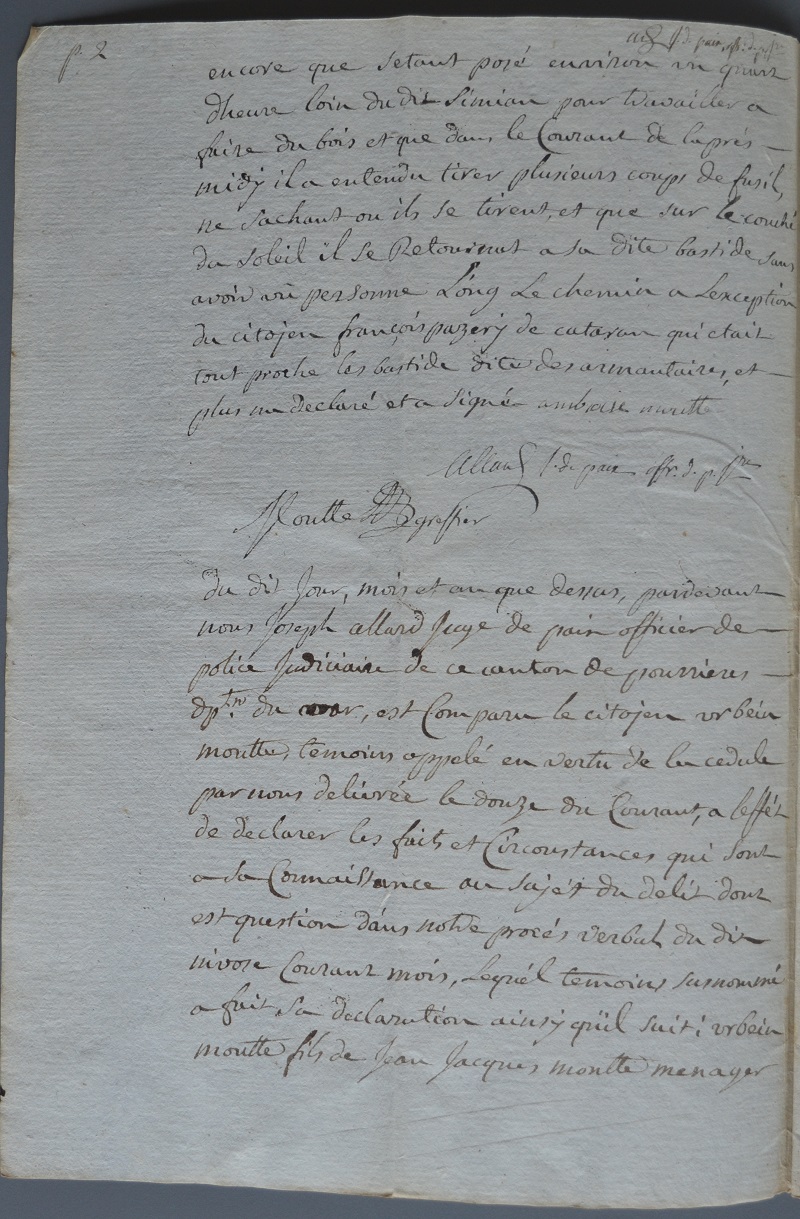 p. 2
j. d. paix, off. d. p. jre
encore que setant posé environ un quart
dheure loin du dit Simian pour travailler a
faire du bois et que dans le Courant de laprés —
midy il a entendu tirer plusieurs coups de fusil,
ne sachant ou ils se tirent, et que sur le couché
du soleil il se Retournat a sa dite bastide sans
avoir vû personne Long Le chemin a Lexception
du citojen françois pazerÿ de cataran qui etait
tout proche les bastide dite des armantaires, et —
plus na declaré et a signé ambroise moutte
Allard j. de paix offr. d. p. jre
Moutte greffier
du dit Jour, mois et an que dessus, pardevant
nous Joseph allard Juge de paix officier de —
police Judiciaire de ce canton de pourrieres —
dptmt. du var, est Comparu le citojen urbein
moutte, temoins appelé en vertu de la cedule
par nous delivrée le douze du Courant, a leffét
de declarer les faits et Circonstances qui sont
a sa Connaissance au sujét du delit dont
est question dans notre procés verbal du dix
nivose Courant mois, Lequél temoins susnommé
a fait sa declaration ainsy quïl suit : urbein
moutte fils de Jean Jacques moutte menager